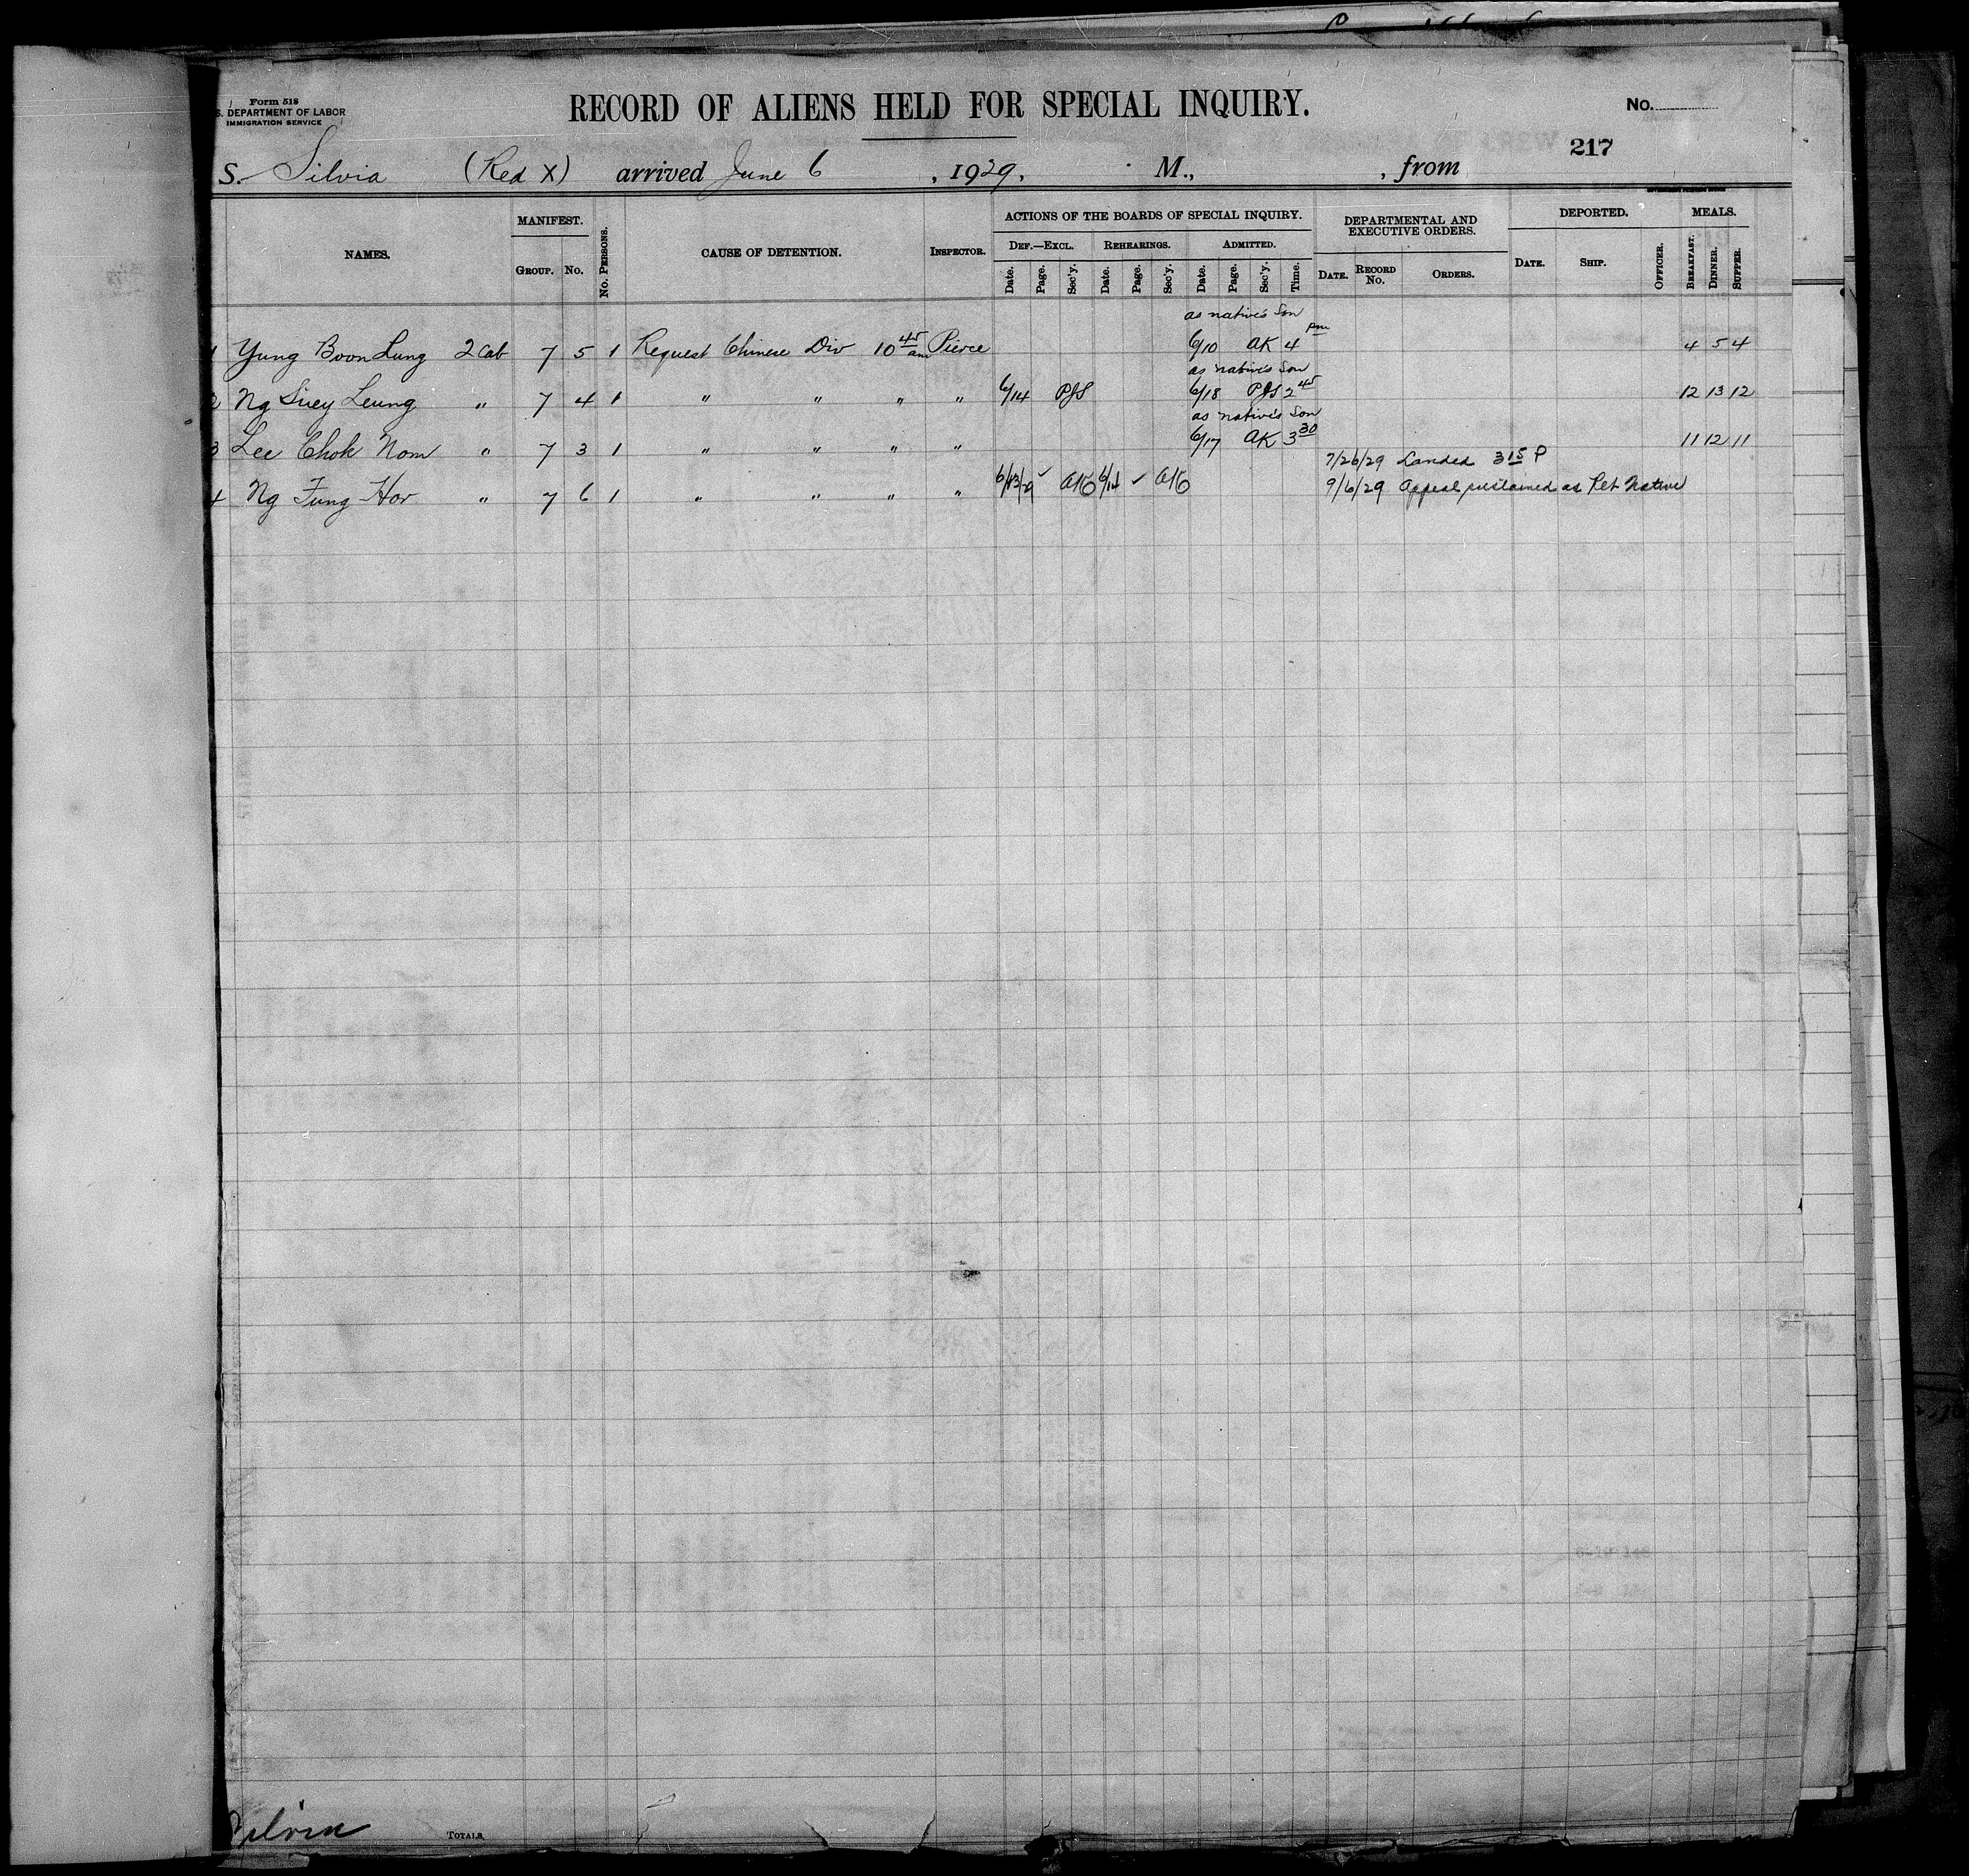 Form 518
S. DEPARTMENT OF LABOR
IMMIGRATION SERVICE
RECORD OF ALIENS HELD FOR SPECIAL INQUIRY.
No.
217
S. Silvia (Red X) arrived June 6, 1929, M., , from
NAMES. MANIFEST. GROUP. NO. No. PERSONS. CAUSE OF DETENTION. INSPECTOR. ACTIONS OF THE BOARDS OF SPECIAL INQUIRY. DEF.—EXCL. Date. Page. Sec'y. REHEARINGS. Date. Page. Sec'y. ADMITTED. Date. Page. Sec'y. Time. DEPARTMENTAL AND EXECUTIVE ORDERS. DATE. RECORD No. ORDERS. DEPORTED. DATE. SHIP. OFFICER. MEALS. BREAKFAST. DINNER. SUPPER.
as native's son
1 Yung Boon Lung 2 Cab 7 5 1 Request Chinese Div 10 45 am Pierce 6/10 AK 4 pm 4 5 4
as native's son
2 Ng Suey Leung " 7 4 1 " " " " 6/14 PJS 6/18 PJS 2 45 12 13 12
as native's son
3 Lee Chok Nom " 7 3 1 " " " " 6/17 AK 3 30 11 12 11
7/26/29 Landed 3 15 P
4 Ng Fung Hor " 7 6 1 " " " " 6/13/29 ✓ 6/14 ✓ 9/6/29 Appeal sustained as Ret Native
Silvia
TOTALS